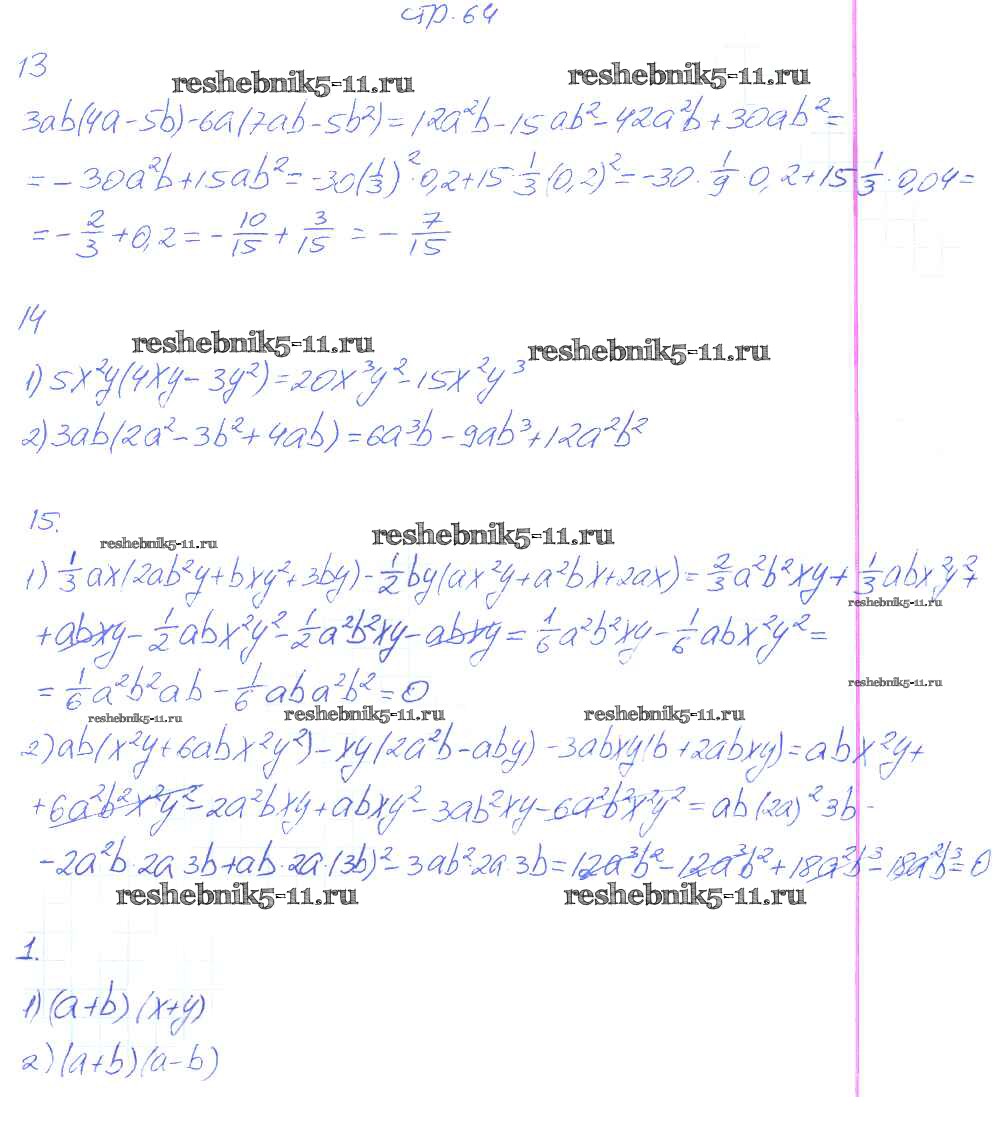 стр. 64
13
reshebnik5-11.ru reshebnik5-11.ru
3ab(4a-5b)-6a(7ab-5b²)=12a²b-15ab²-42a²b+30ab²=
=-30a²b+15ab²=-30(1/3)²·0,2+15·1/3(0,2)²=-30·1/9·0,2+15 1/3·0,04=
=-2/3+0,2=-10/15+3/15=-7/15
14
reshebnik5-11.ru reshebnik5-11.ru
1)5x²y(4xy-3y²)=20x³y²-15x²y³
2)3ab(2a²-3b²+4ab)=6a³b-9ab³+12a²b²
15.
reshebnik5-11.ru reshebnik5-11.ru
1)1/3ax(2ab²y+bxy²+3by)-1/2by(ax²y+a²bx+2ax)=2/3a²b²xy+1/3abx²y²+
reshebnik5-11.ru
+abxy-1/2abx²y²-1/2a²b²xy-abxy=1/6a²b²xy-1/6abx²y²=
=1/6a²b²ab-1/6aba²b²=0
reshebnik5-11.ru
reshebnik5-11.ru reshebnik5-11.ru reshebnik5-11.ru
2)ab(x²y+6abx²y²)-xy(2a²b-aby)-3abxy(b+2abxy)=abx²y+
+6a²b²x²y²-2a²bxy+abxy²-3ab²xy-6a²b²x²y²=ab(2a)²3b-
-2a²b·2a 3b+ab·2a·(3b)²-3ab²·2a·3b=12a³b²-12a³b²+18a²b³-18a²b³=0
reshebnik5-11.ru reshebnik5-11.ru
1.
1)(a+b)(x+y)
2)(a+b)(a-b)